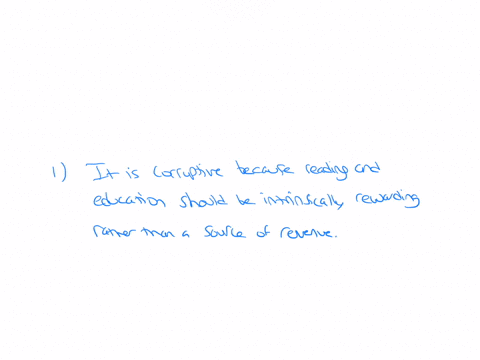 1) It is corruptive because reading and
education should be intrinsically rewarding
rather than a source of revenue.